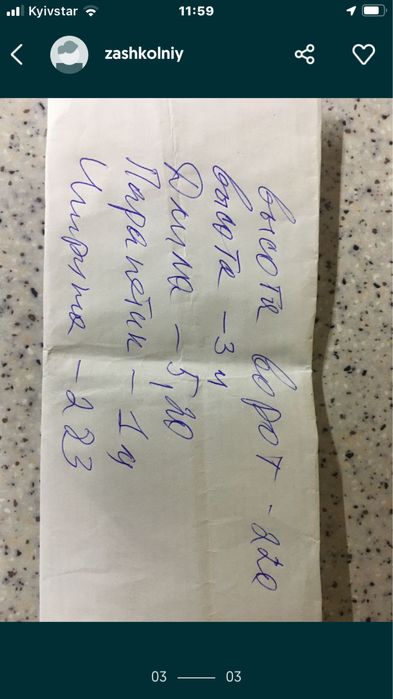 Kyivstar
11:59
zashkolniy
высота ворот - 220
высота - 3 м
Длина - 5,20
Парапетик - 1 м
Ширина - 223
03
03